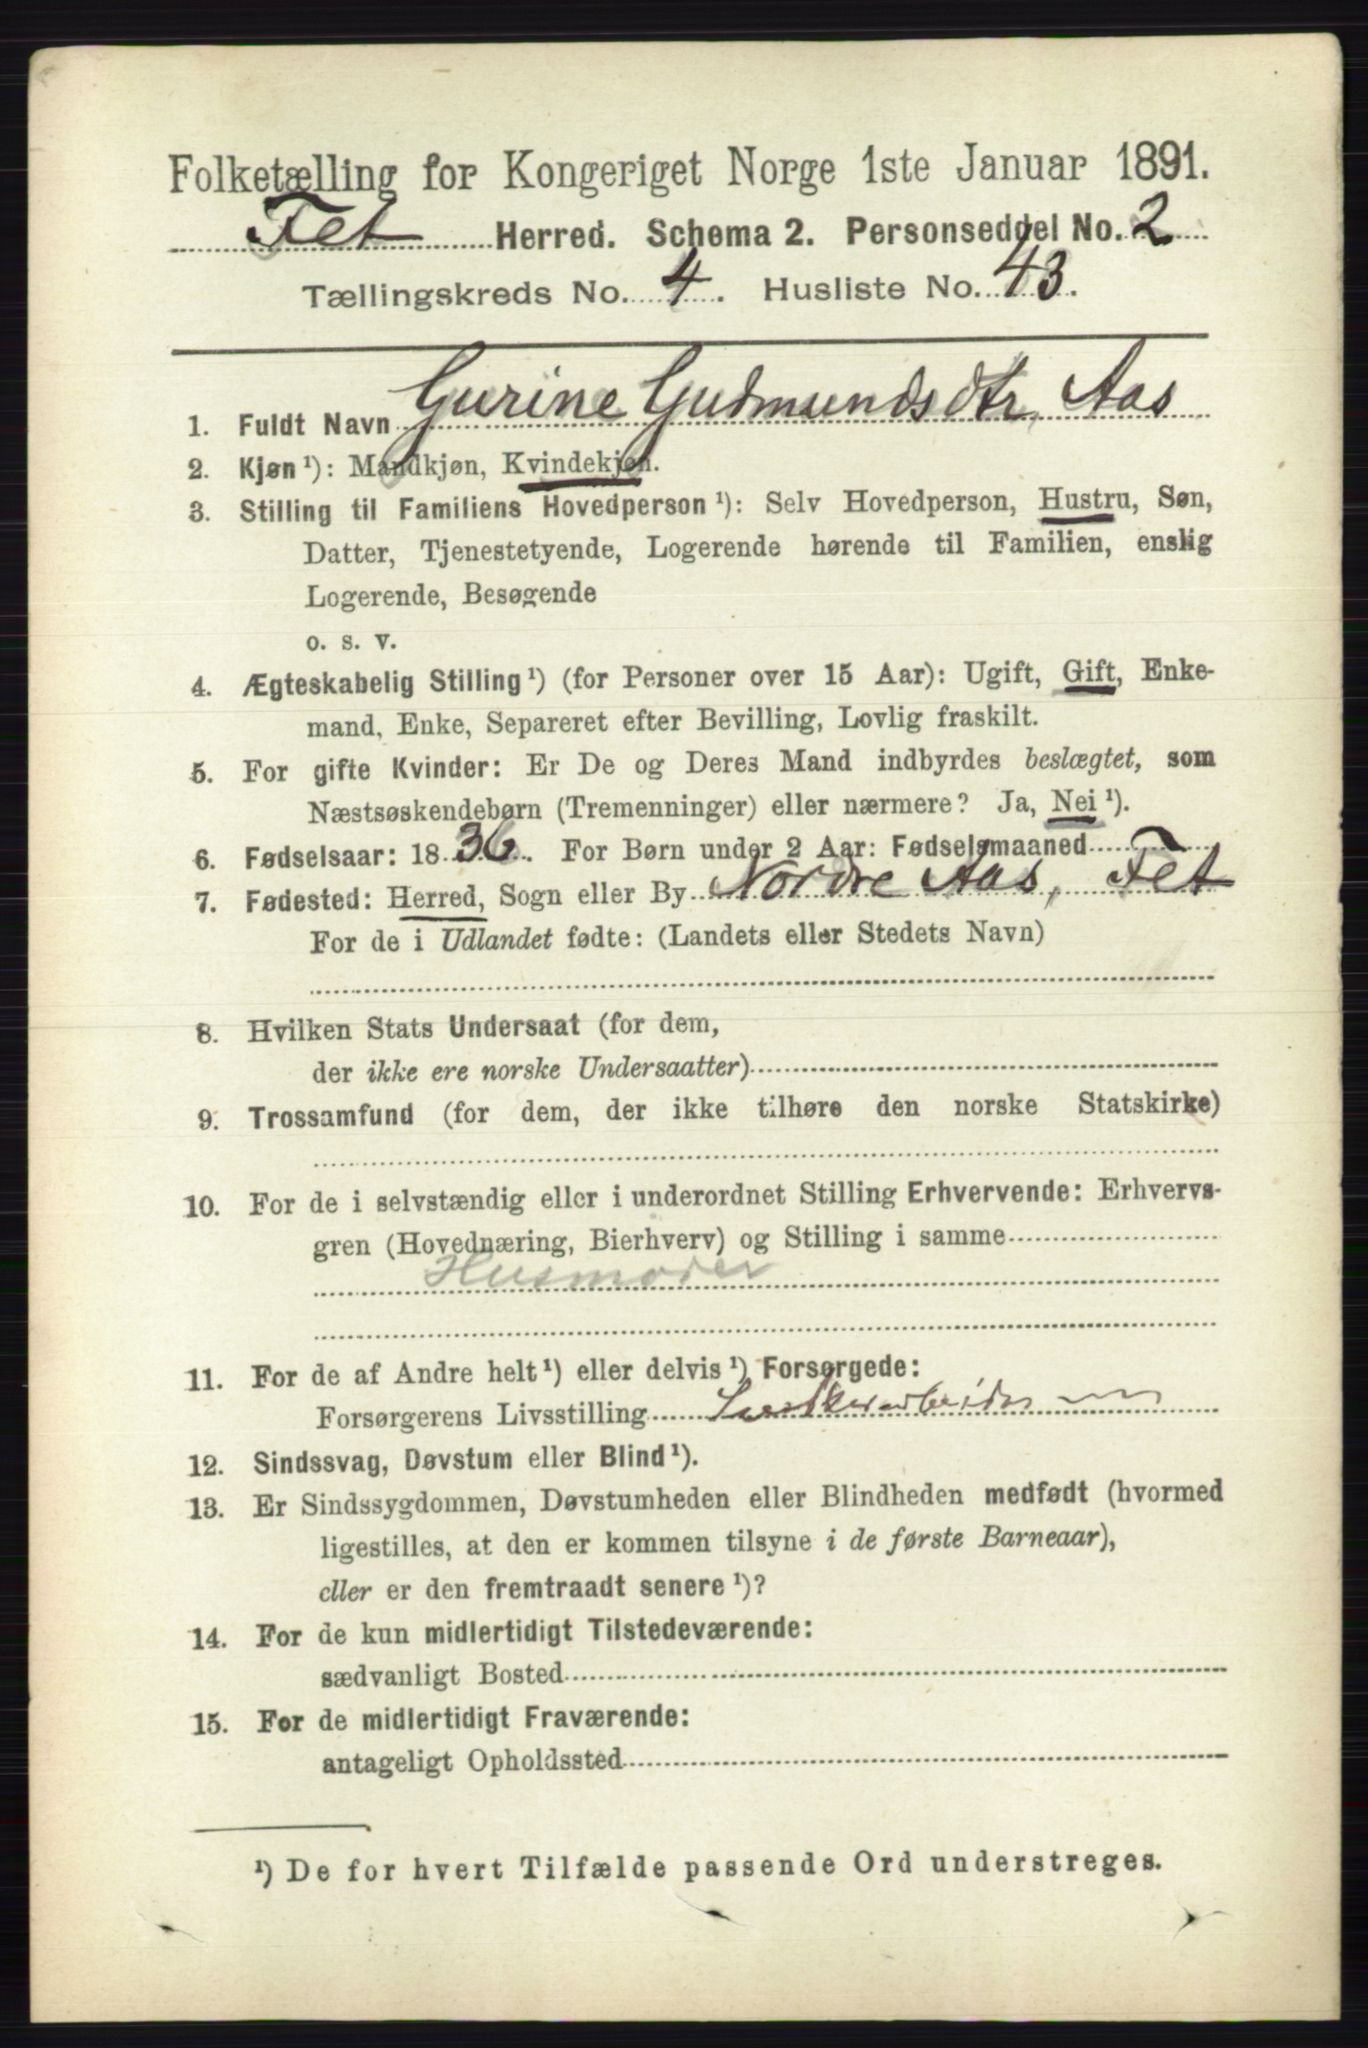 Folketælling for Kongeriget Norge 1ste Januar 1891.
Fet Herred. Schema 2. Personseddel No. 2
Tællingskreds No. 4. Husliste No. 43.
1. Fuldt Navn Gurine Gudmundsdtr. Aas
2. Kjøn ¹): Mandkjøn, Kvindekjøn.
3. Stilling til Familiens Hovedperson ¹): Selv Hovedperson, Hustru, Søn,
Datter, Tjenestetyende, Logerende hørende til Familien, enslig
Logerende, Besøgende
o. s. v.
4. Ægteskabelig Stilling ¹) (for Personer over 15 Aar): Ugift, Gift, Enke-
mand, Enke, Separeret efter Bevilling, Lovlig fraskilt.
5. For gifte Kvinder: Er De og Deres Mand indbyrdes beslægtet, som
Næstsøskendebørn (Tremenninger) eller nærmere? Ja, Nei ¹).
6. Fødselsaar: 1836. For Børn under 2 Aar: Fødselsmaaned
7. Fødested: Herred, Sogn eller By Nordre Aas, Fet
For de i Udlandet fødte: (Landets eller Stedets Navn)
8. Hvilken Stats Undersaat (for dem,
der ikke ere norske Undersaatter)
9. Trossamfund (for dem, der ikke tilhøre den norske Statskirke)
10. For de i selvstændig eller i underordnet Stilling Erhvervende: Erhvervs-
gren (Hovednæring, Bierhverv) og Stilling i samme
Husmoder
11. For de af Andre helt ¹) eller delvis ¹) Forsørgede:
Forsørgerens Livsstilling
12. Sindssvag, Døvstum eller Blind ¹).
13. Er Sindssygdommen, Døvstumheden eller Blindheden medfødt (hvormed
ligestilles, at den er kommen tilsyne i de første Barneaar),
eller er den fremtraadt senere ¹)?
14. For de kun midlertidigt Tilstedeværende:
sædvanligt Bosted
15. For de midlertidigt Fraværende:
antageligt Opholdssted
¹) De for hvert Tilfælde passende Ord understreges.